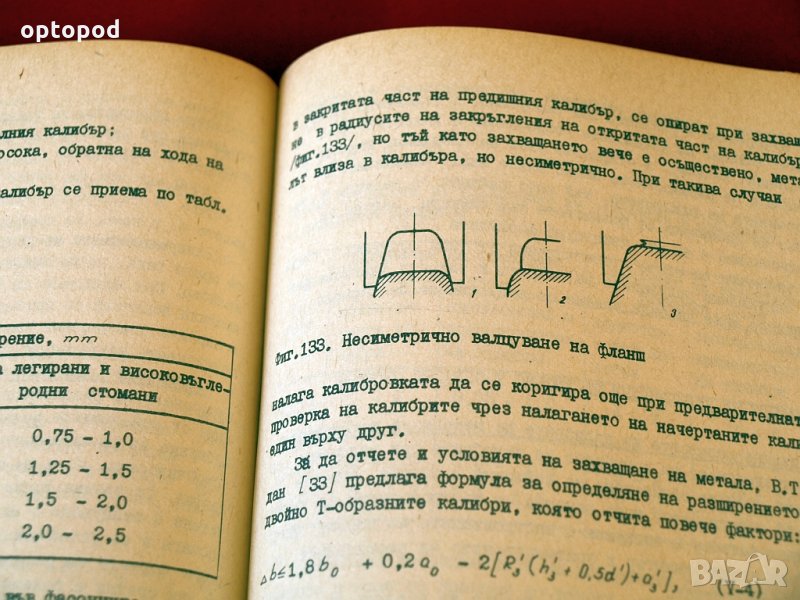 optopod
лния калибър;
осока, обратна на хода на
калибър се приема по табл.
рение, mm
а легирани и високовъгле-
родни стомани
0,75 - 1,0
1,25 - 1,5
1,5 - 2,0
2,0 - 2,5
във фасонните
в закритата част на предишния калибър, се опират при захва
не в радиусите на закръгления на откритата част на калибър
/фиг.133/, но тъй като захващането вече е осъществено, мета
лът влиза в калибъра, но несиметрично. При такива случаи
1 2 3
Фиг.133. Несиметрично валцуване на фланш
налага калибровката да се коригира още при предварителнат
проверка на калибрите чрез налагането на начертаните кали
един върху друг.
За да отчете и условията на захващане на метала, В.Т
дан [33] предлага формула за определяне на разширението
двойно Т-образните калибри, която отчита повече фактори:
Δb≤1,8b₀ + 0,2a₀ - 2[R₃'(h₃' + 0,5d')+a₃'], (V-4)
BAZAR